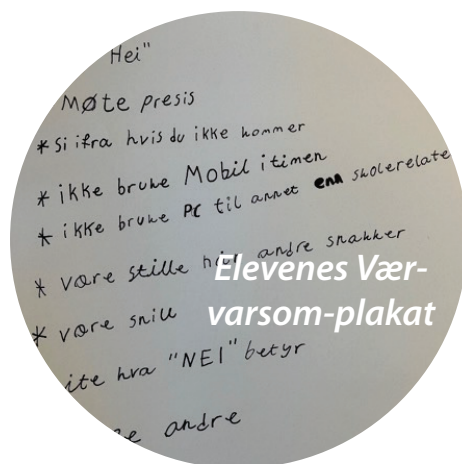 Hei"
Møte presis
* Si ifra hvis du ikke kommer
* ikke bruke Mobil i timen
* ikke bruke PC til annet enn skolerelate
* være stille når andre snakker
* være snill
ite hva "NEI" betyr
andre
Elevenes Vær-
varsom-plakat